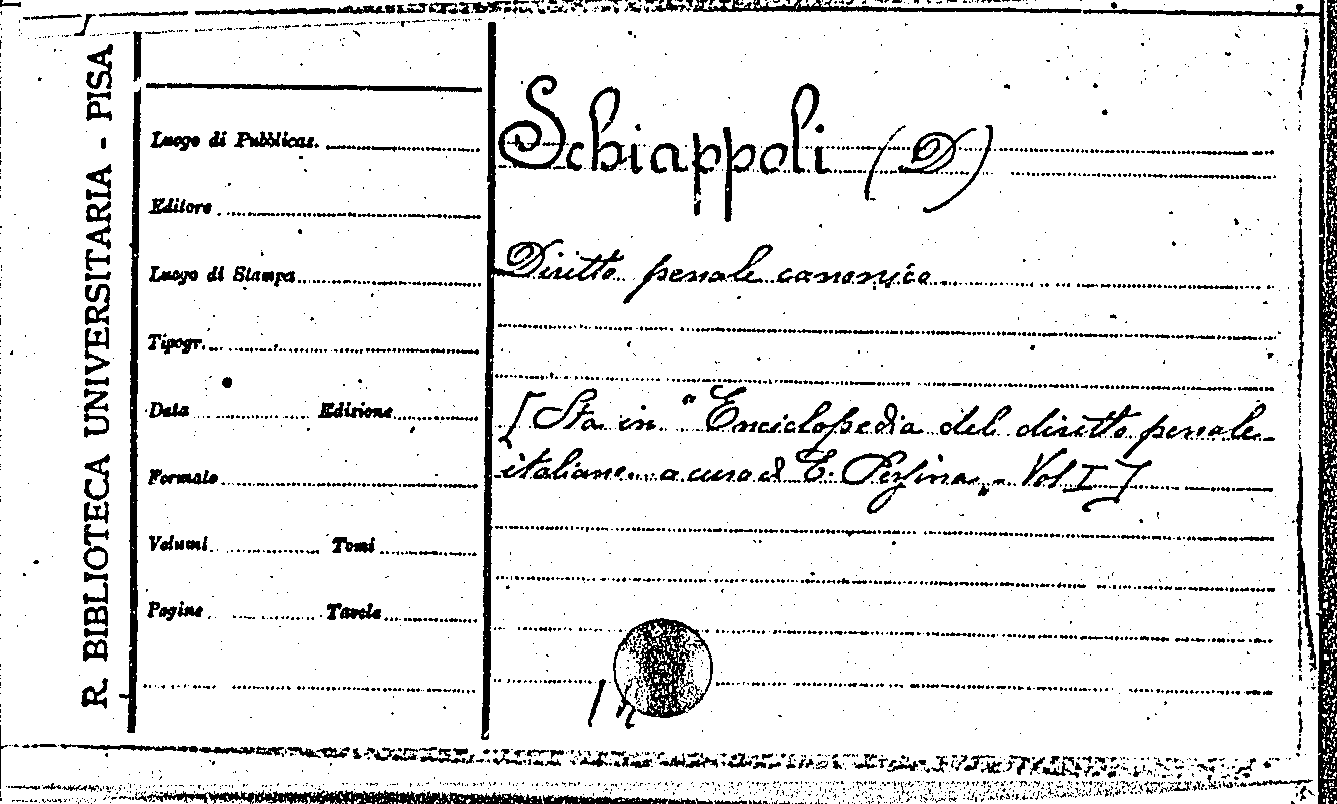 R. BIBLIOTECA UNIVERSITARIA - PISA
Luogo di Pubblicaz.
Editore
Luogo di Stampa
Tipogr.
Data Edizione
Formato
Volumi Tomi
Pagine Tavole
Schiappoli (D)
Diritto penale canonico
[Sta in "Enciclopedia del diritto penale
italiano a cura di E. Pessina" - Vol I]